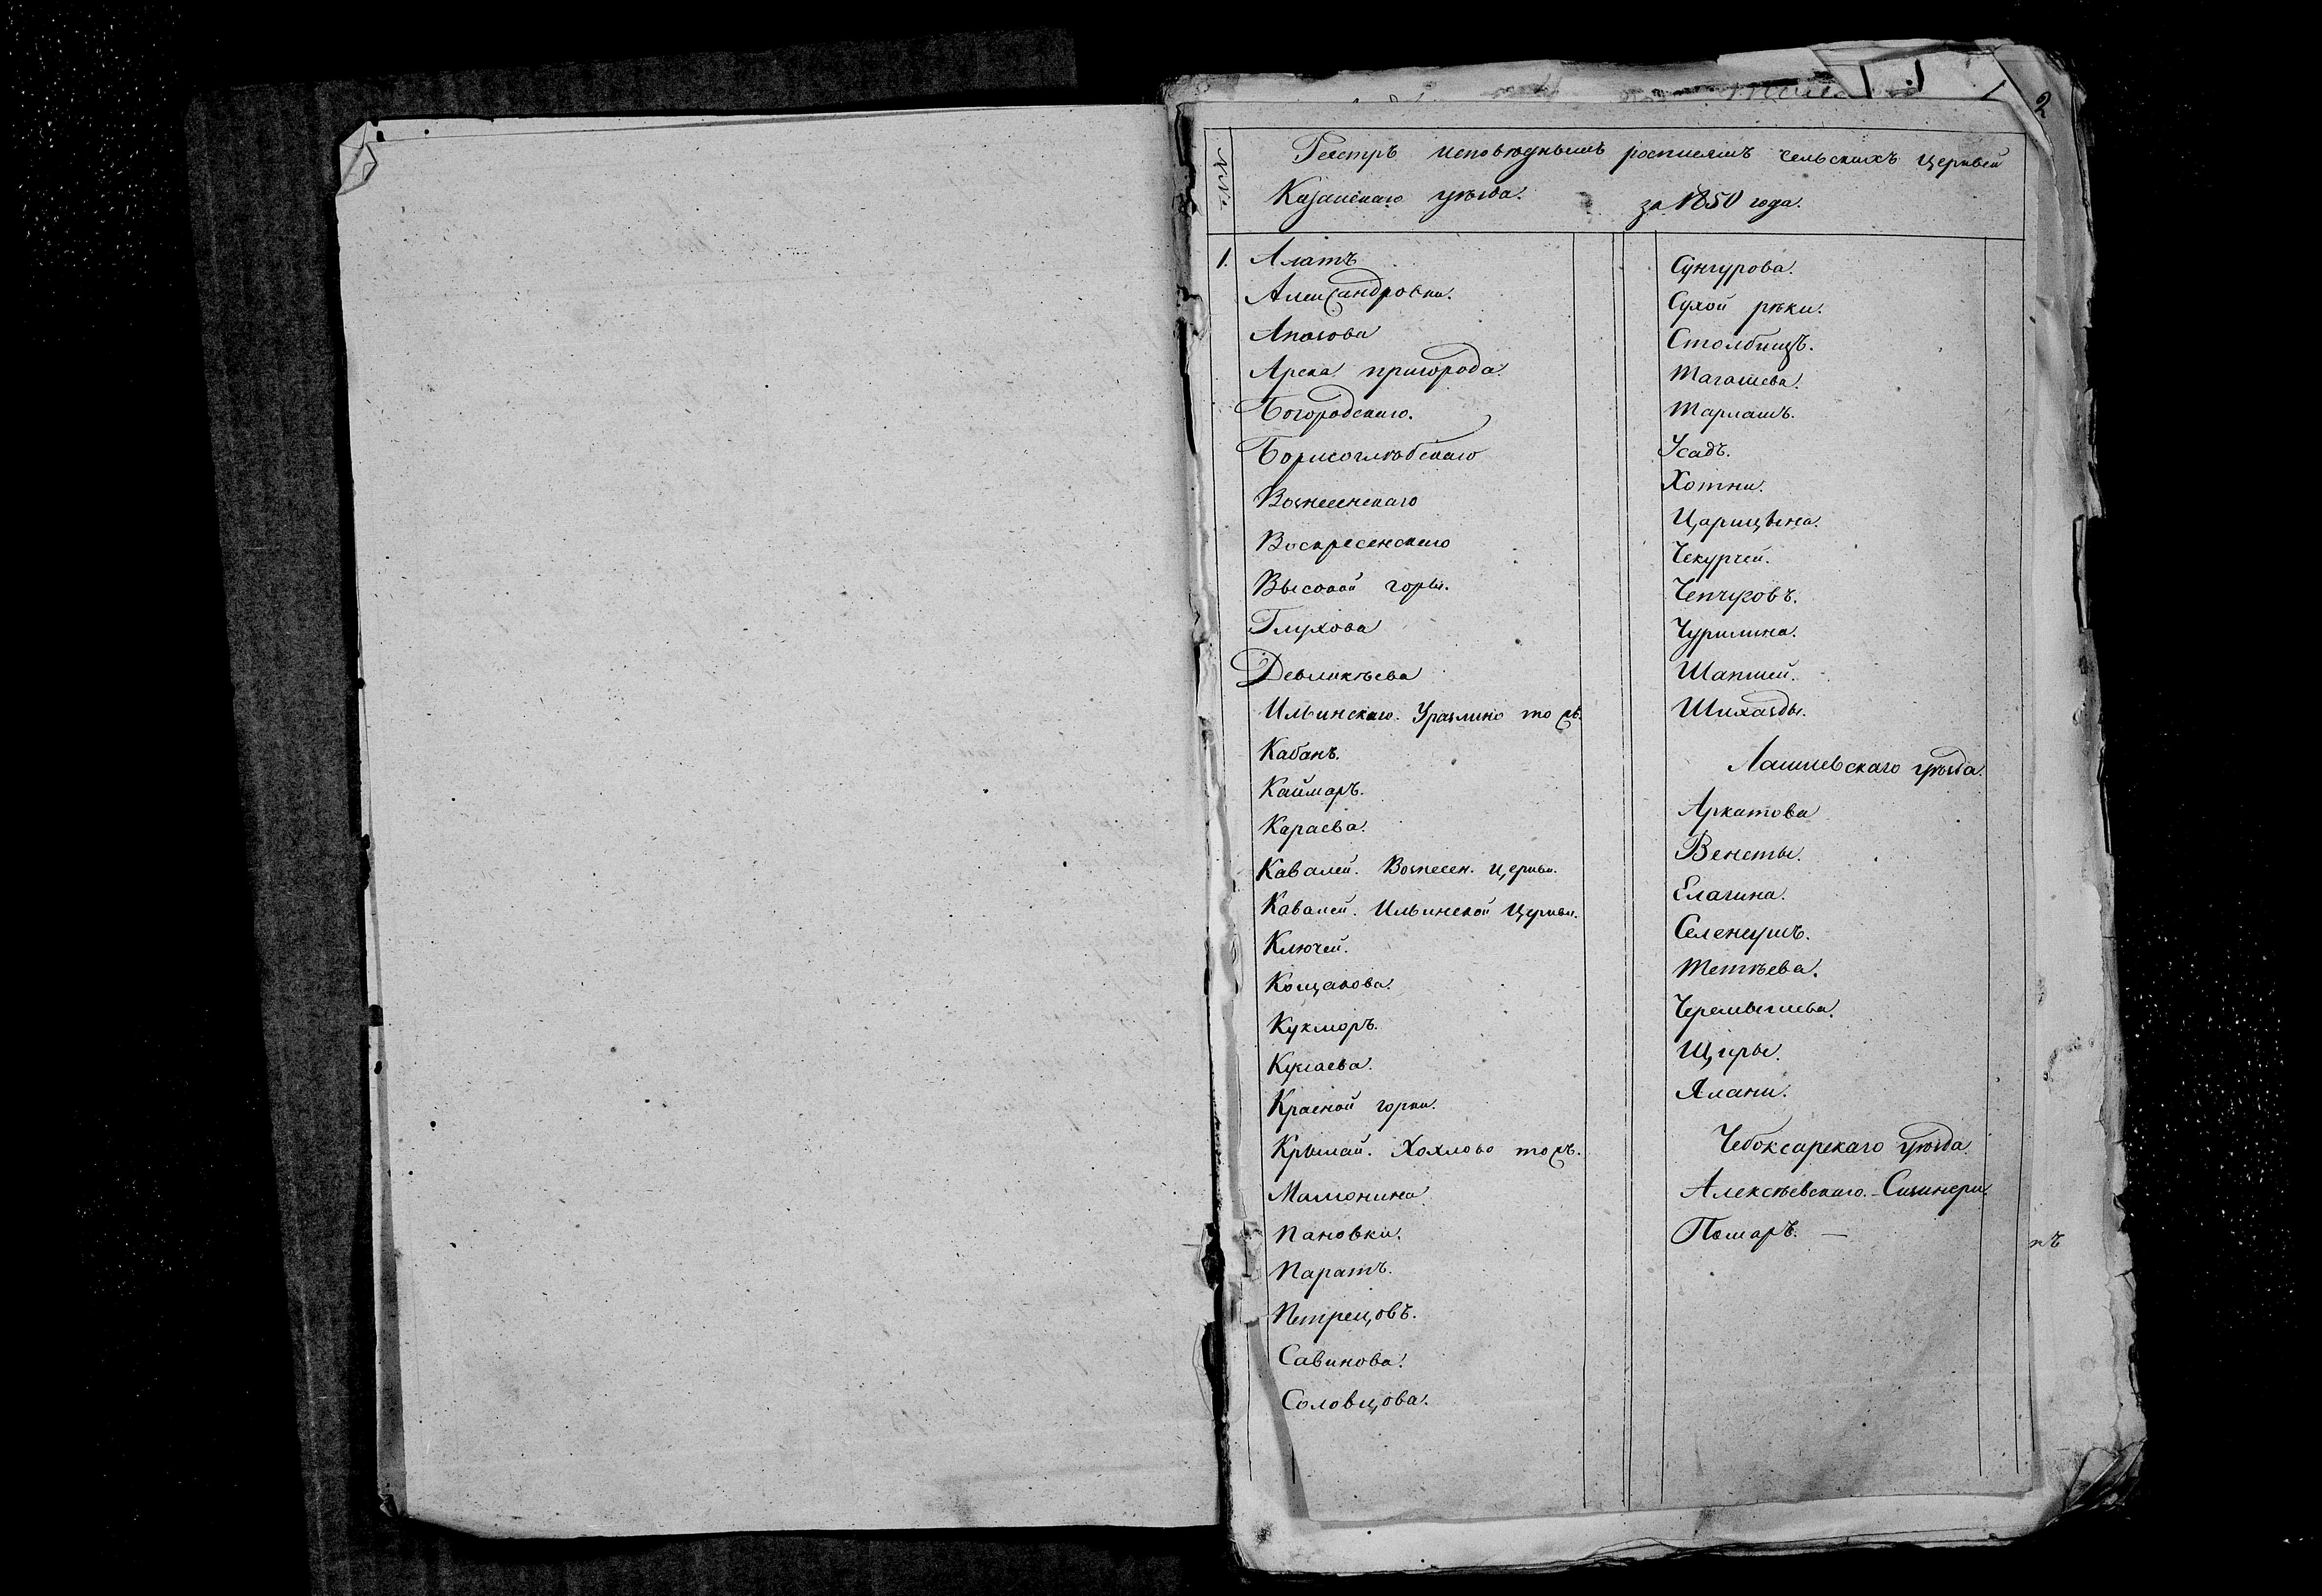 2
№№
Реестръ исповѣднымъ росписямъ сельскихъ церквей
Казанскаго уѣзда. за 1850 года.
1. Алатъ
Александровки.
Апазова
Арска пригорода.
Богородскаго.
Борисоглѣбскаго
Вознесенскаго
Воскресенскаго
Высокой горы.
Глухова
Девликѣева
Ильинскаго. Уразлино тожъ.
Кабанъ.
Каймаръ.
Караева.
Кавалей. Вознесен. церкви.
Кавалей. Ильинской Церкви.
Ключей.
Кощакова.
Кукморъ.
Кулаева.
Красной горки.
Крылай. Хохлово тожъ.
Мамонина
Пановки.
Паратъ.
Петрецовъ.
Савинова.
Соловцова.
Сунгурова.
Сухой рѣки.
Столбищъ.
Тагашева.
Тарлашъ.
Усадъ.
Хотни.
Царицына.
Чекурчей.
Чепчуговъ.
Чурилина.
Шапшей.
Шихазды.
Лаишевскаго уѣзда.
Аркатова
Венеты.
Елагина.
Селенгушъ.
Тетѣева.
Черемышева.
Щеры.
Ялани.
Чебоксарскаго уѣзда.
Алексѣевскаго. - Сизинери.
Помаръ. —